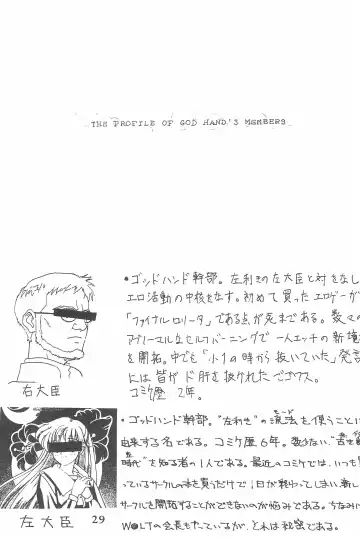 THE PROFILE OF GOD HAND'S MEMBERS
・ゴッドハンド幹部。左利きの左大臣と対をなし
エロ活動の中核をなす。初めて買ったエロゲーが
「ファイナルロリータ」である点が
を開拓。中でも「小1の時から抜いていた」発言
には皆がド肝を抜かれたでゴザンス。
コミケ歴 2年。
右大臣
・ゴッドハンド幹部。"左利き"の魔法を使うことに
由来する名である。コミケ歴6年。数少ない
時代"を知る者の1人である。最近のコミケでは、いつも
っているサークルの本を買うだけで1日が終わってしまい、新し
サークルを開拓することができないのが悩みである。ちなみに
の会長もたっているが、それは秘密である。
左大臣 29